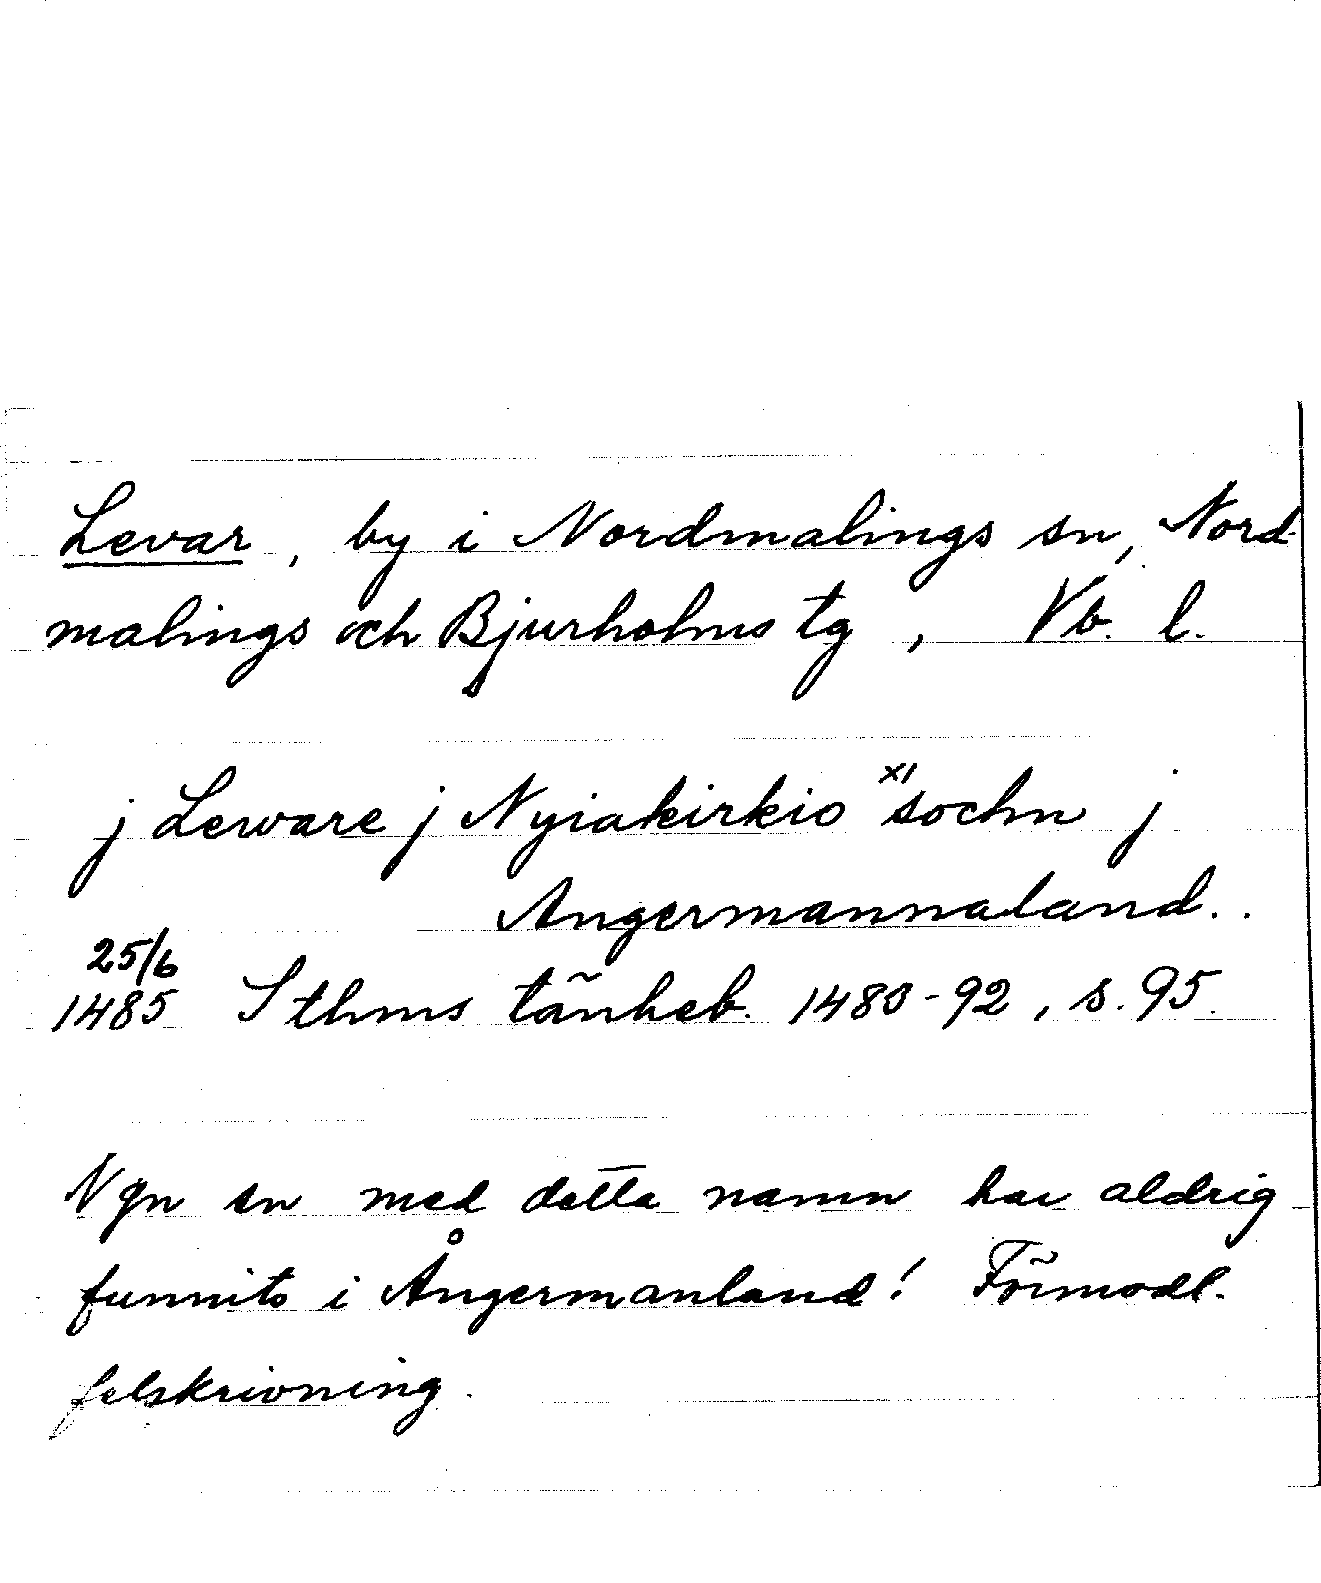 Levar, by i Nordmalings sn, Nord-
malings och Bjurholms tg, Vb. l.
j Leware j Nyiakirkio x) sochn j
Angermannaland..
25/6
1485 Sthms tänkeb. 1483-92, s. 95.
Ngn sn med detta namn har aldrig
funnits i Ångermanland! Förmodl.
felskrivning.